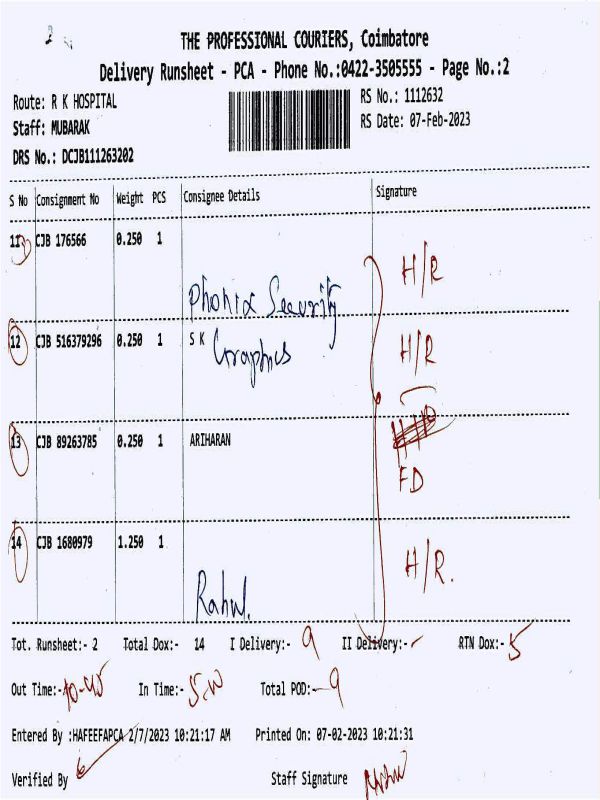 2
THE PROFESSIONAL COURIERS, Coimbatore
Delivery Runsheet - PCA - Phone No.:0422-3505555 - Page No.:2
Route: R K HOSPITAL
RS No.: 1112632
Staff: MUBARAK
RS Date: 07-Feb-2023
DRS No.: DCJB111263202
S No Consignment No Weight PCS Consignee Details Signature
11 CJB 176566 0.250 1 H/R
Phonix Security
12 CJB 516379296 0.250 1 S K Graphics H/R
13 CJB 89263785 0.250 1 ARIHARAN
FD
14 CJB 1680979 1.250 1 H/R.
Rahul.
Tot. Runsheet:- 2 Total Dox:- 14 I Delivery:- 9 II Delivery:- - RTN Dox:- 5
Out Time:- 10-45 In Time:- 5.10 Total POD:- 9
Entered By :HAFEEFAPCA 2/7/2023 10:21:17 AM Printed On: 07-02-2023 10:21:31
Verified By Staff Signature